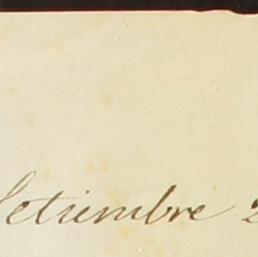 Setiembre 2